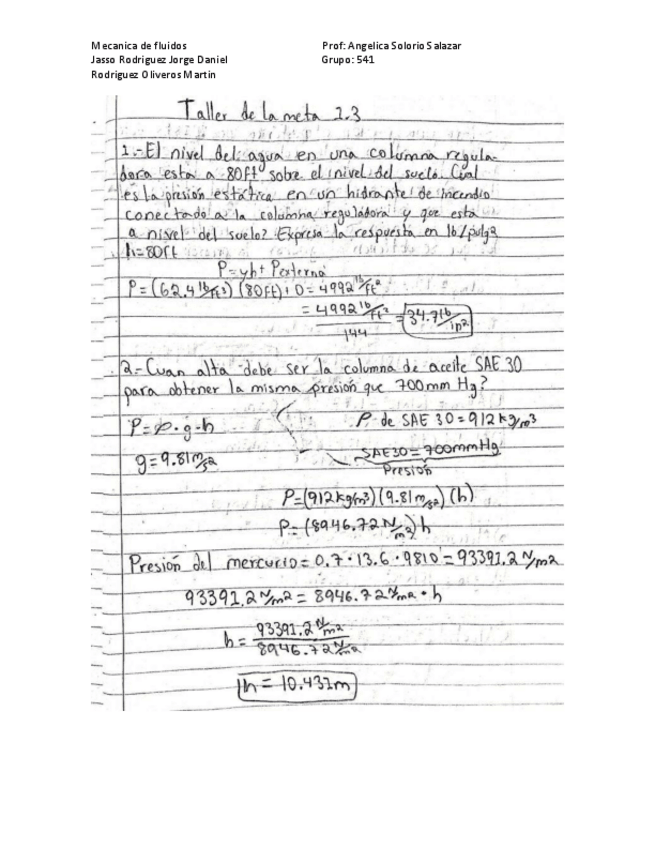 Mecanica de fluidos
Jasso Rodriguez Jorge Daniel
Rodriguez Oliveros Martin
Prof: Angelica Solorio Salazar
Grupo: 541
Taller de la meta 1.3
1.-El nivel del agua en una columna regula-
dora esta a 80ft sobre el nivel del suelo. Cual
es la presión estática en un hidrante de incendio
conectado a la columna reguladora y que está
a nivel del suelo? Expresa la respuesta en lb/pulg2
h=80ft
P=γh+ Pexterna
P=(62.4 lb/ft3) (80ft)+0=4992 lb/ft2
= 4992 lb/ft2 / 144 = 34.7 lb/in2
2.-Cuan alta debe ser la columna de aceite SAE 30
para obtener la misma presión que 700mm Hg?
P=ρ·g·h
ρ de SAE 30=912 kg/m3
g=9.81 m/s2
SAE30=700mmHg
Presión
P=(912kg/m3)(9.81 m/s2)(h)
P=(8946.72 N/m2)h
Presión del mercurio=0.7·13.6·9810=93391.2 N/m2
93391.2 N/m2= 8946.72 N/m2·h
h= 93391.2 N/m2 / 8946.72 N/m2
h=10.431m